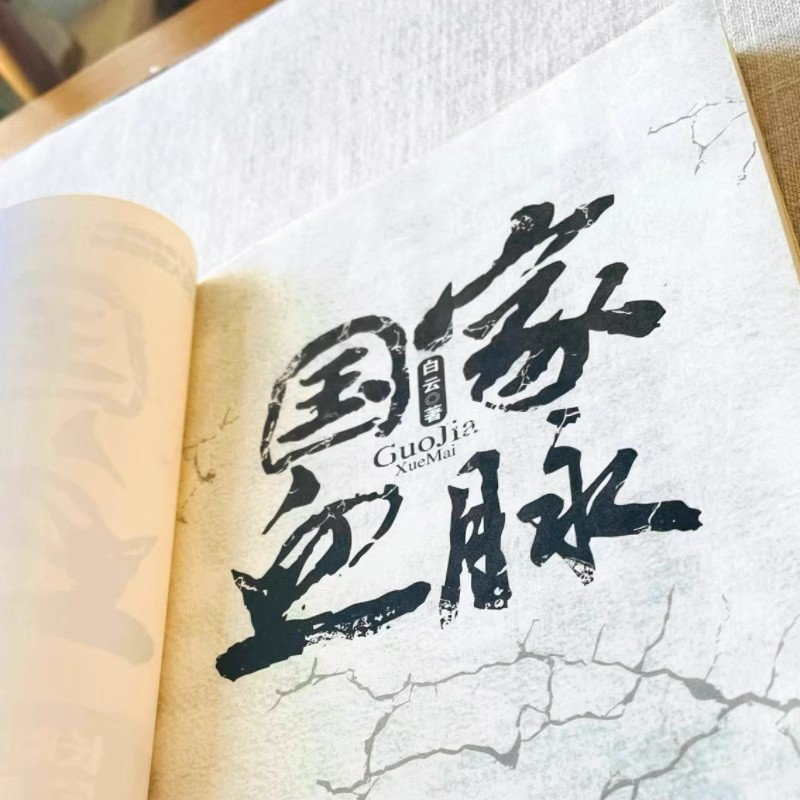 国家
白云◎著
GuoJia
XueMai
血脉